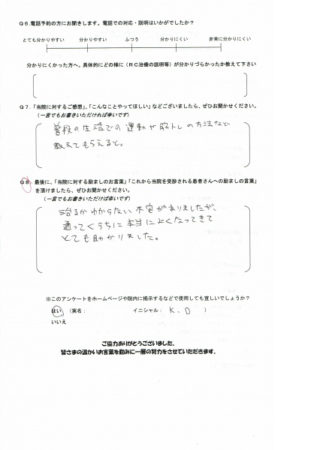 Q6.電話予約の方にお聞きします。電話での対応・説明はいかがでしたか？
とても分かりやすい　分かりやすい　ふつう　分かりにくい　非常に分かりにくい
分かりにくかった方へ、具体的にどの様に（RC治療の説明等）が分かりづらかったか教えて下さい
Q7.「当院に対するご感想」、「こんなことやってほしい」などございましたら、ぜひお聞かせください。
（一言でもお書きいただければ幸いです）
普段の生活での運動や筋トレの方法など
教えてもらえると。
Q8.最後に、「当院に対する励ましのお言葉」「これから当院を受診される患者さんへの励ましの言葉」
を頂けましたら、ぜひお聞かせください。
（一言でもお書きいただければ幸いです）
治るかわからない不安がありましたが、
通ってくうちに本当によくなってきて
とても助かりました。
※このアンケートをホームページや院内に掲示するなどで使用しても宜しいでしょうか？
はい　（実名：　イニシャル：K.D　）
いいえ
ご協力ありがとうございました。
皆さまの温かいお言葉を励みに一層の努力をさせていただきます。